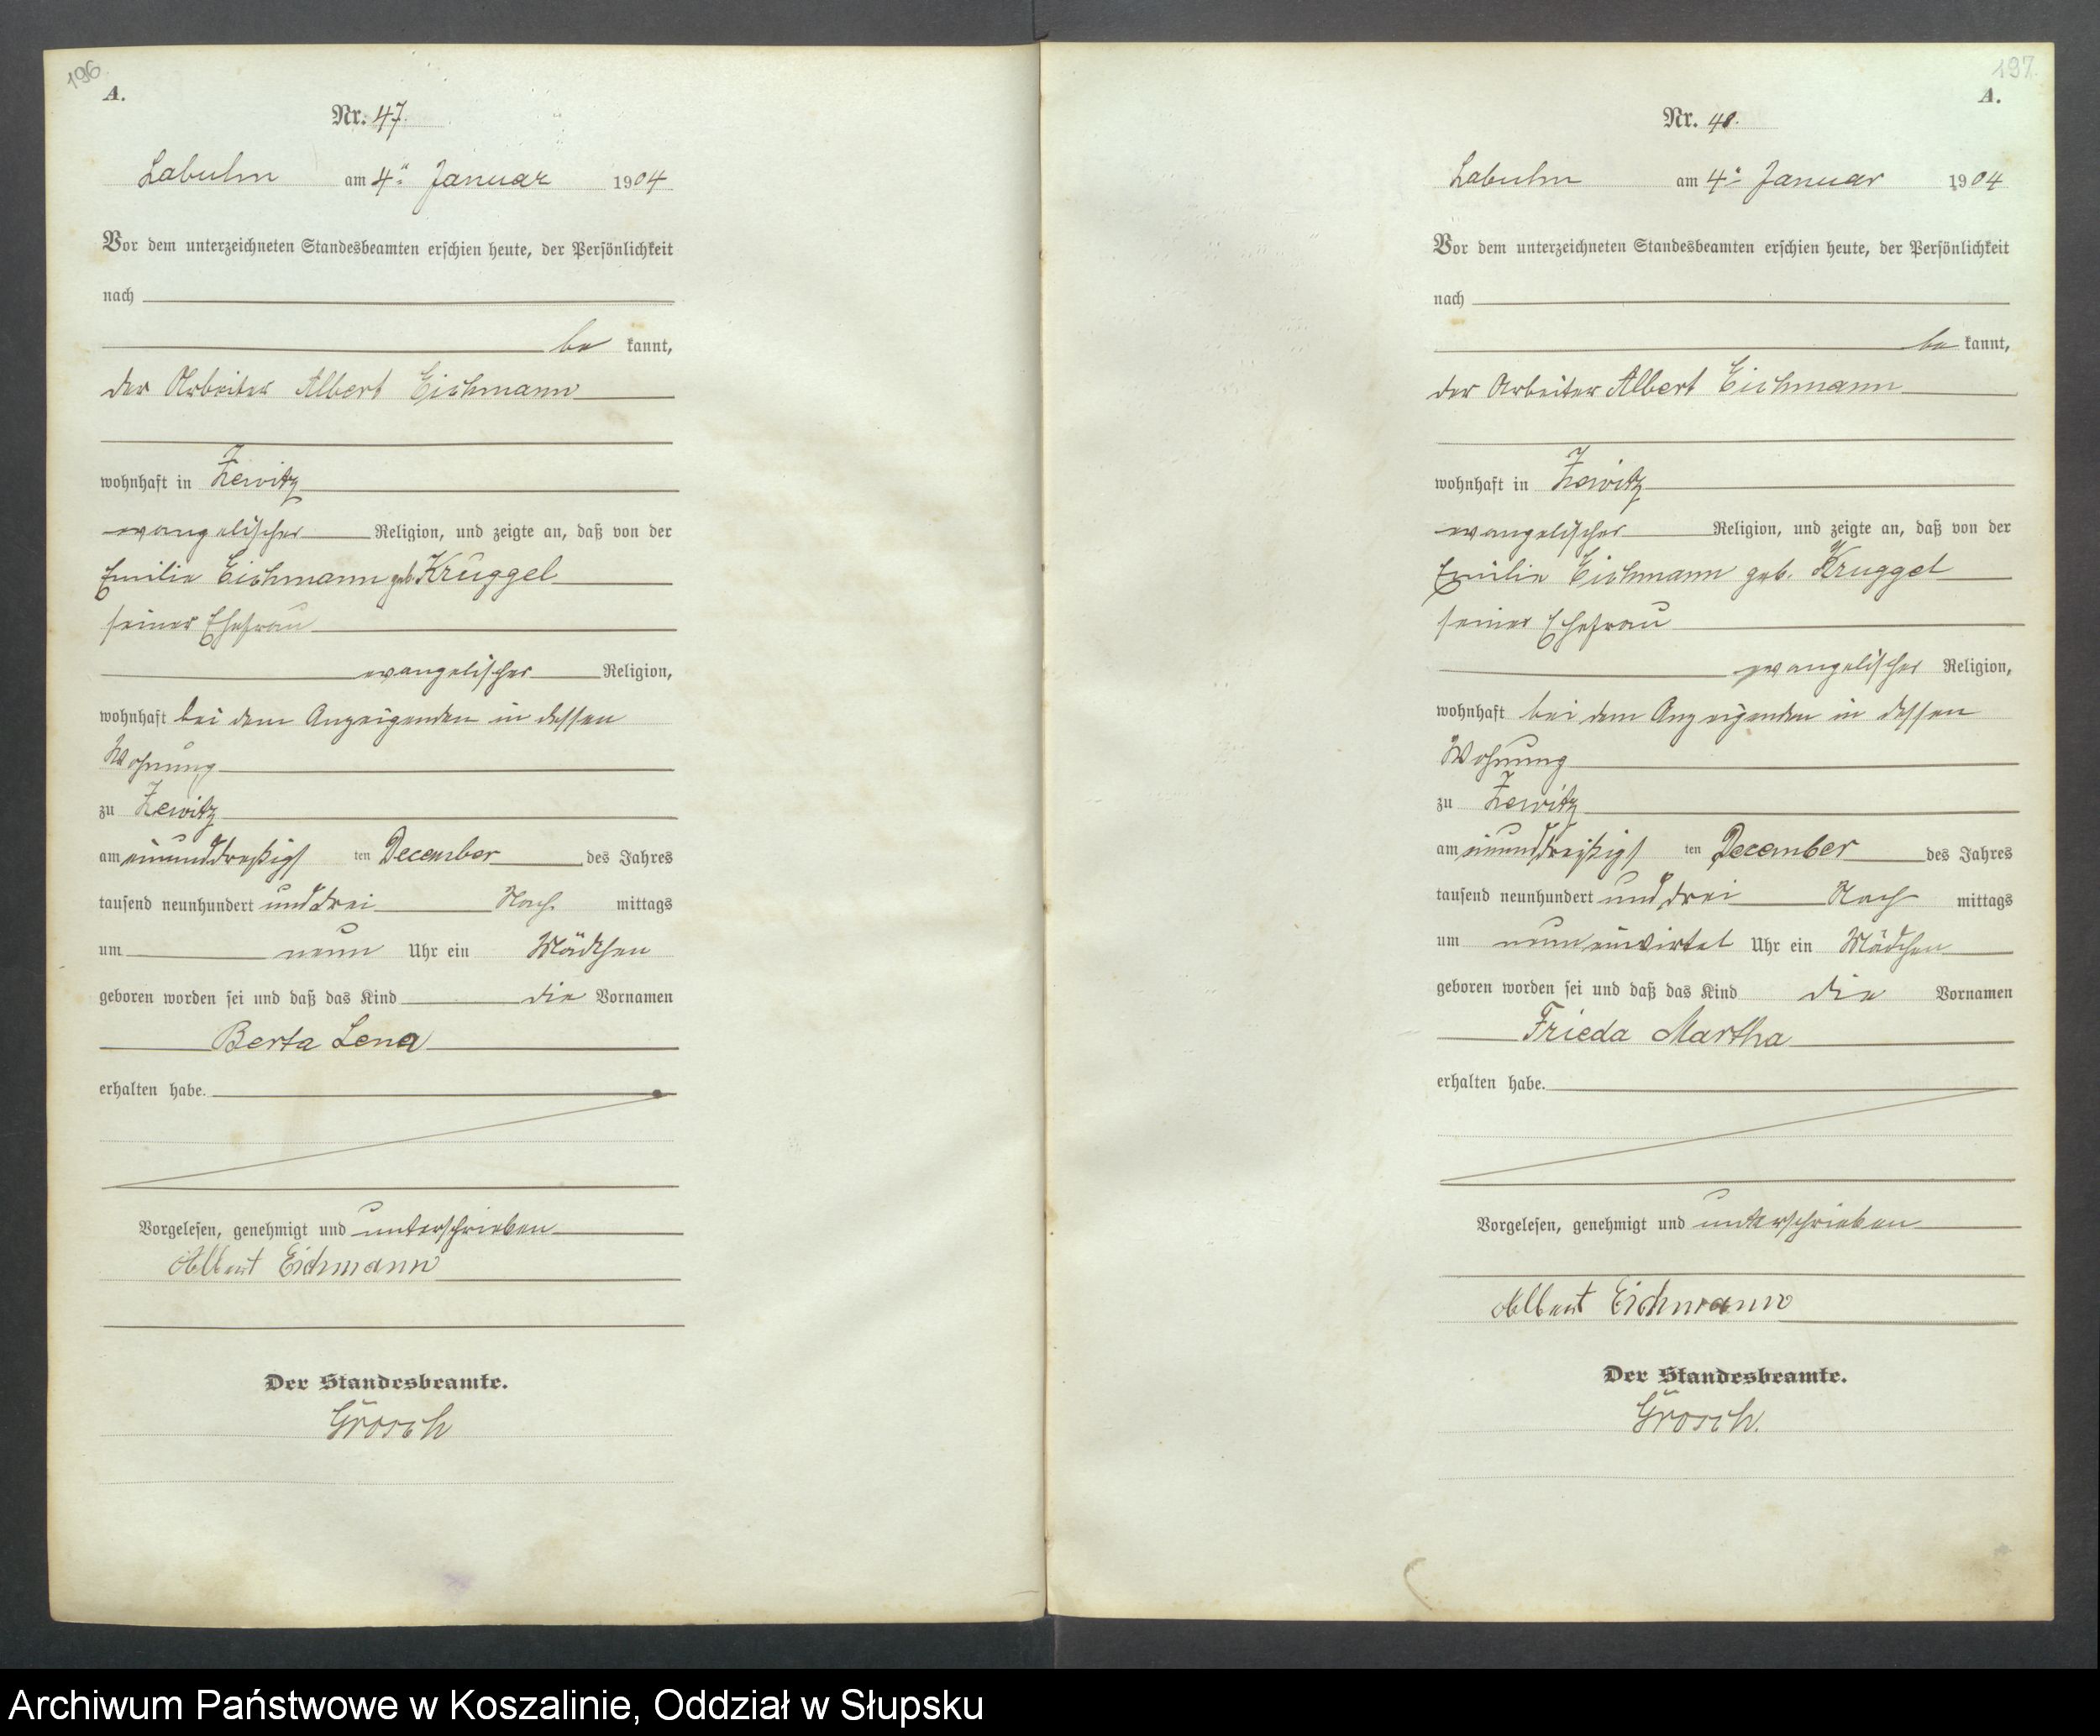 196
A.
Nr. 47.
Labuhn am 4. Januar 1904
Vor dem unterzeichneten Standesbeamten erschien heute, der Persönlichkeit
nach
be kannt,
der Arbeiter Albert Eichmann
wohnhaft in Zewitz
evangelischer Religion, und zeigte an, daß von der
Emilie Eichmann geb. Kruggel
seiner Ehefrau
evangelischer Religion,
wohnhaft bei dem Anzeigenden in dessen
Wohnung
zu Zewitz
am einunddreißigs ten December des Jahres
tausend neunhundert und drei Nach mittags
um neun Uhr ein Mädchen
geboren worden sei und daß das Kind die Vornamen
Berta Lena
erhalten habe.
Vorgelesen, genehmigt und unterschrieben
Albert Eichmann
Der Standesbeamte.
Grosch
197.
A.
Nr. 48.
Labuhn am 4. Januar 1904
Vor dem unterzeichneten Standesbeamten erschien heute, der Persönlichkeit
nach
be kannt,
der Arbeiter Albert Eichmann
wohnhaft in Zewitz
evangelischer Religion, und zeigte an, daß von der
Emilie Eichmann geb. Kruggel
seiner Ehefrau
evangelischer Religion,
wohnhaft bei dem Anzeigenden in dessen
Wohnung
zu Zewitz
am einunddreißigs ten December des Jahres
tausend neunhundert und drei Nach mittags
um neuneinviertel Uhr ein Mädchen
geboren worden sei und daß das Kind die Vornamen
Frieda Martha
erhalten habe.
Vorgelesen, genehmigt und unterschrieben
Albert Eichmann
Der Standesbeamte.
Grosch.
Archiwum Państwowe w Koszalinie, Oddział w Słupsku